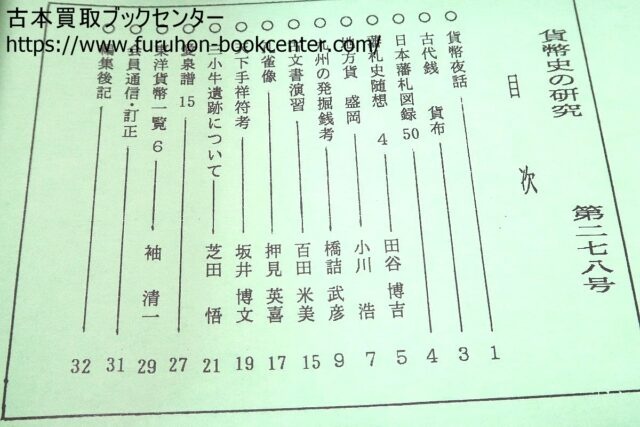 古本買取ブックセンター
https://www.furuhon-bookcenter.com/
貨幣史の研究 第二七八号
目次
○ 貨幣夜話 1
○ 古代銭 貨布 3
○ 日本藩札図録 50 4
○ 藩札史随想 4 田谷 博吉 5
○ 地方貨 盛岡 小川 浩 7
○ 九州の発掘銭考 橋詰 武彦 9
○ 古文書演習 百田 米美 15
○ 孔雀像 押見 英喜 17
○ 天下手祥符考 坂井 博文 19
○ 三小牛遺跡について 芝田 悟 21
○ 愛泉譜 15 27
○ 東洋貨幣一覧 6 袖 清一 29
○ 会員通信・訂正 31
○ 編集後記 32